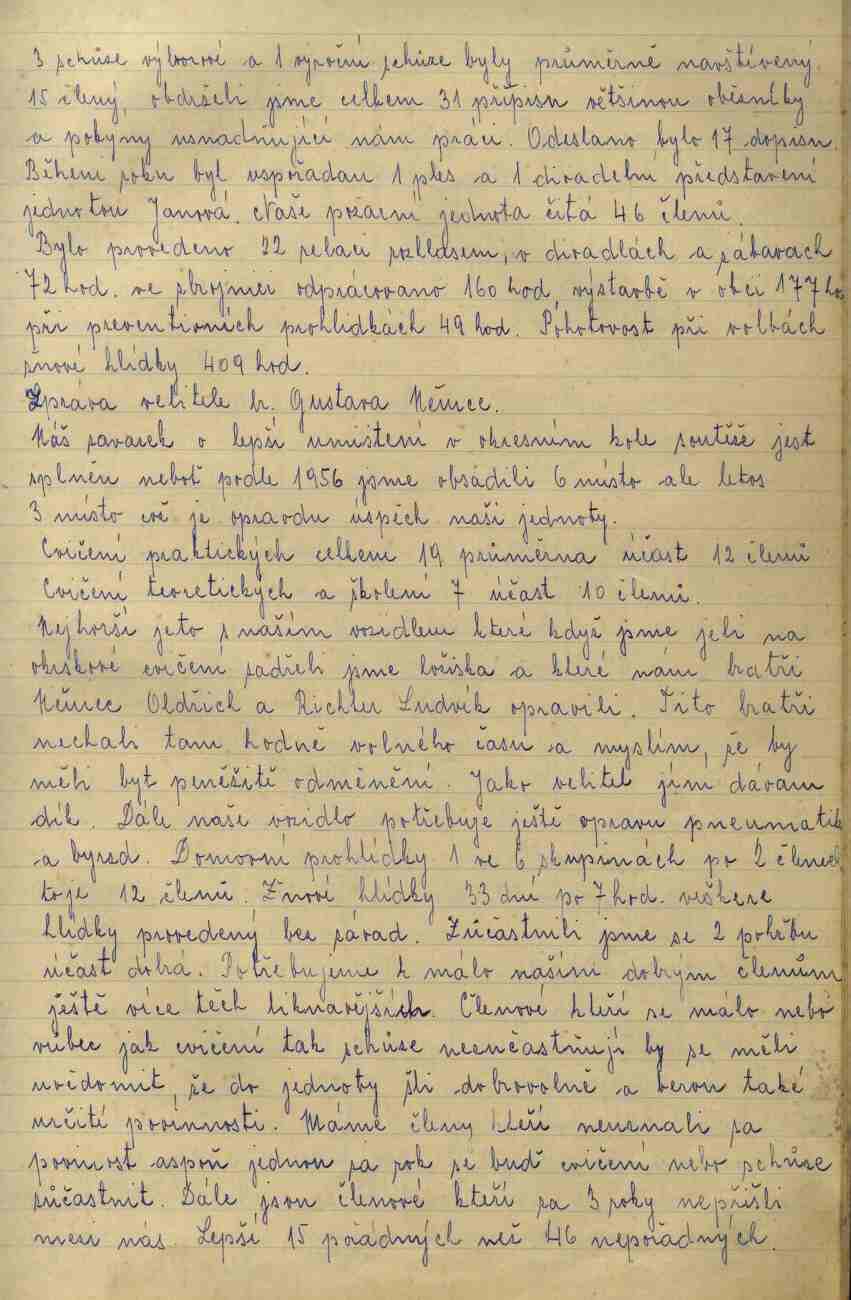 3 schůze výborové a 1 výroční schůze byly průměrně navštívený
15 členy, obdrželi jme celkem 31 přípisu většinou oběsníky
a pokyny usnadňující nám práci. Odeslano bylo 17 dopisu.
Během roku byl uspořadan 1 ples a 1 divadelní představení
jednotou Janová. Naše požarní jednota čítá 46 členů.
Bylo provedeno 22 relaci rozhlasem, v divadlách a zábavach
72 hod. ve zbrojnici odprácovano 160 hod, výstarbě v obci 177 ho
při preventivních prohlídkách 49 hod. Pohotovost při volbách
žnové hlídky 409 hod.
Zpráva velitele br. Gustava Němce.
Náš zavazek o lepší umistení v okresním kole soutěže jest
splněn neboť podle 1956 jsme obsádili 6 místo ale letos
3 místo což je opravdu úspěch naši jednoty.
Cvičení praktických celkem 19 průměrna účast 12 členů
Cvičení teoretických a školení 7 účast 10 členů.
Nejhorší jeto s naším vozidlem které když jme jeli na
okrskové cvičení zadřeli jme ložiska a které nám bratři
Němec Oldřich a Richter Ludvík opravili. Tito bratři
nechali tam hodně volného času a myslím, že by
měli byt peněžitě odměnění. Jako velitel jím dávam
dík. Dále naše vozidlo potřebuje ještě opravu pneumatik
a byrzd. Domovní prohlídky 1 ve 6 skupinách po 2 členech
toje 12 členů. Žnové hlídky 33 dní po 7 hod. veškere
hlídky provedený bez závad. Zúčastnili jme se 2 pohřbu
účast dobrá. Potřebujeme k málo našim dobrým členům
ještě více těch liknavějších. Členové kteří se málo nebo
vůbec jak cvičení tak schůze neenčastňují by se měli
uvědomit, že do jednoty šli dobrovolně a berou také
určité povinnosti. Máme členy kteří neuznali za
povinost aspoň jednou za rok se buď cvičení nebo schůze
zúčastnit. Dále jsou členové kteří za 3 roky nepřišli
mezi nás. Lepší 15 pořádných než 46 nepořadných.